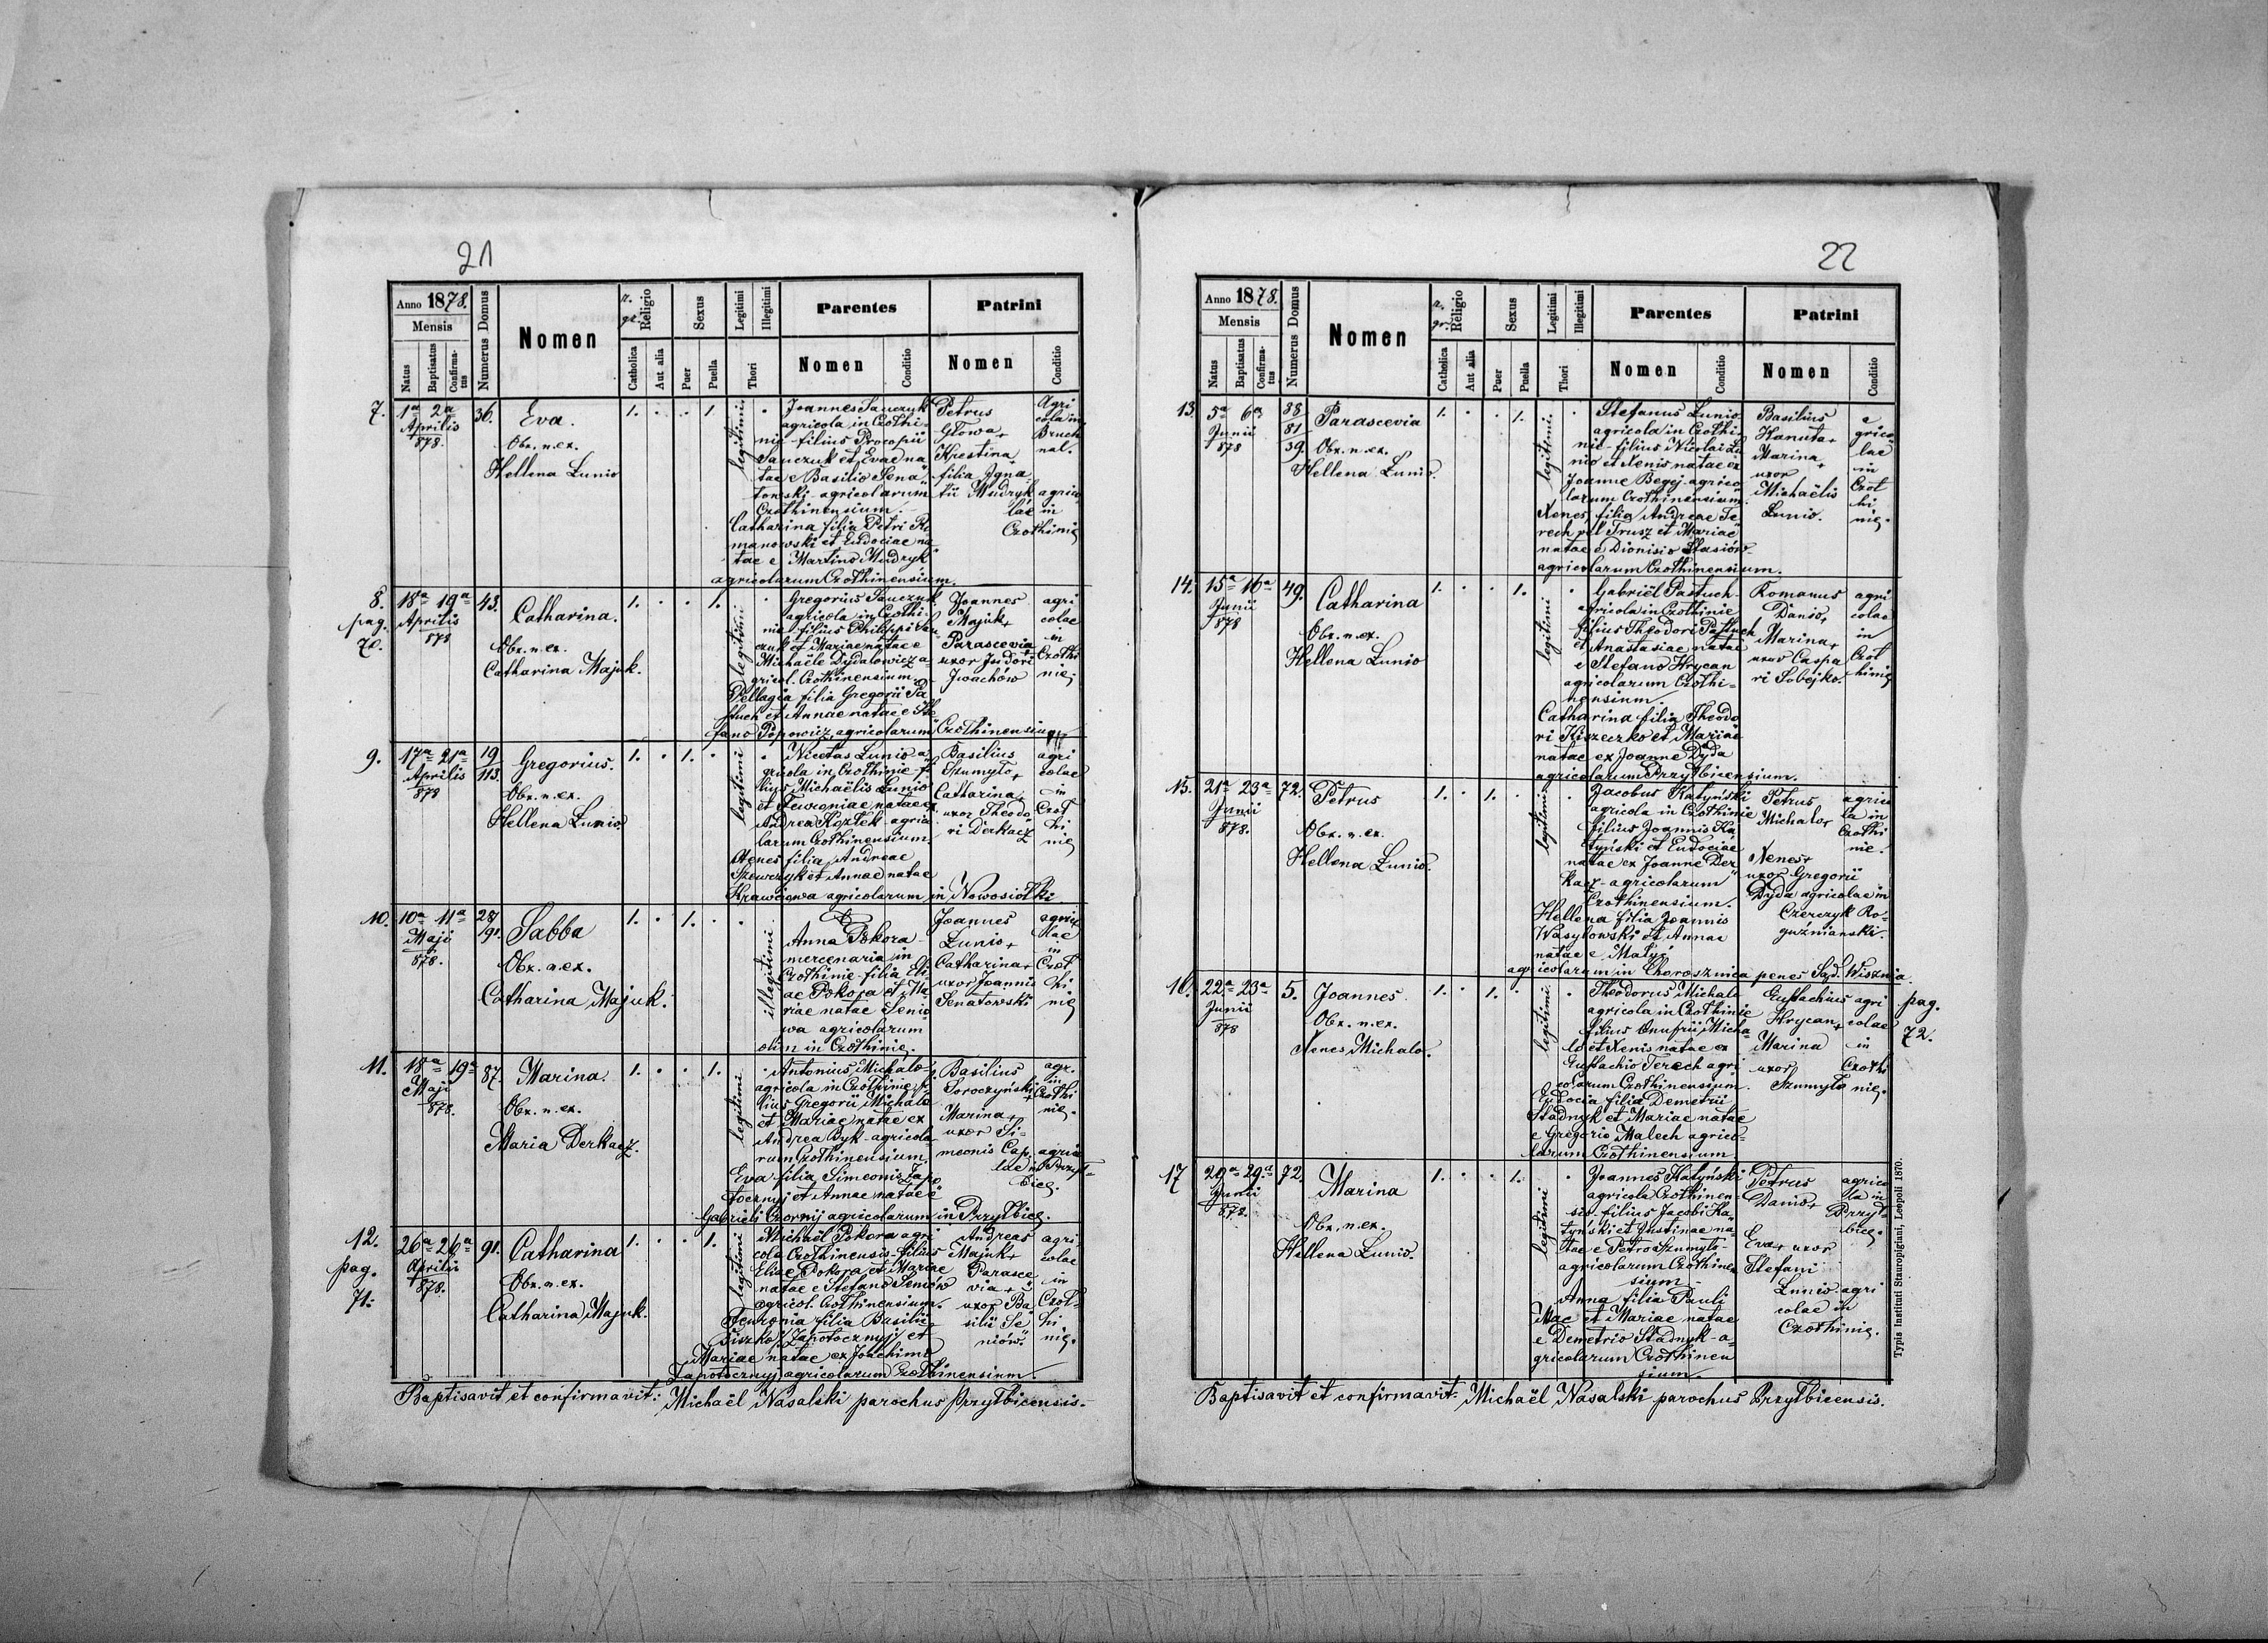 21
Anno 1878.
Mensis
Natus
Baptisatus
Confirma-
tus
Numerus Domus
Nomen
r. gr. Religio
Catholica
Aut alia
Sexus
Puer
Puella
Legitimi
Illegitimi
Thori
Parentes
Nomen
Conditio
Patrini
Nomen
Conditio
7.
1a 2a
Aprilis
878.
36.
Eva.
Obx. n. ex.
Hellena Łunio
1. . . 1.
legitimi
Joannes Sawczyk
agricola in Czołhi-
nie - filius Procopii
Sawczuk et Evae na
tae e Basilio Sena-
towski - agricolarum
Czołhinensium. -
Catharina filia Petri Ro
manowski et Eudociae na
tae e Martino Mudryk
agricolarum Czołhinensium.
Petrus
Głowa +
Krestina +
filia Igna-
tii Mudryk
Agri
cola in
Bruch
nal.
agrico
lae in
Czołhinie
8.
pag.
70.
18a 19a
Aprilis
878
43.
Catharina.
Obx. n. ex.
Catharina Majuk.
1. . . 1.
legitimi
Gregorius Sawczuk
agricola in Czołhi-
nie - filius Philippi Saw
czuk et Mariae natae e
Michaële Dydałowicz a-
gricol. Czołhinensium. -
Pellagia filia Gregorii Pa
stuch et Annae natae e Ste
fano Popowicz, agricolarum Czołhinensium
Joannes
Majuk +
Parascevia +
uxor Isidori
Iwachów
agri
colae
in
Czołhi
nie.
9.
17a 21a
Aprilis
878
19
113.
Gregorius.
Obx. n. ex.
Hellena Łunio.
1. . 1. .
legitimi
Nicetas Łunio a-
gricola in Czołhinie fi
lius Michaëlis Łunio
et Fewroniae natae ex
Andrea Kozłek - agrico
larum Czołhinensium.
Xenes filia Andreae
Szewczyk et Annae natae
Krawcowa agricolarum in Nowosiołki
Basilius
Szumyło +
Catharina +
uxor Theodo
ri Derkacz
agri
colae
in
Czoł
hi
nie
10.
10a 11a
Maji
878.
28/
91.
Sabba
Obx. n. ex.
Catharina Majuk.
1. . 1. .
illegitimi
Anna Pokora -
mercenaria in
Czołhinie - filia Eli-
ae Pokora et Ma
riae natae Senio
wa agricolarum
olim in Czołhinie.
Joannes
Łunio +
Catharina +
uxor Joannis
Senatowski
agrico
lae
in
Czoł
hi
nie
11.
18a 19a
Maji
878.
87.
Marina.
Obx. n. ex.
Maria Derkacz.
1. . . 1.
legitimi
Antonius Michało -
agricola in Czołhinie fi
lius Gregorii Michało
et Mariae natae ex
Andrea Byk - agricola
rum Czołhinensium.
Eva filia Simeonis Zapo
tocznyj et Annae natae e
Gabrieli Czornij agricolarum in Przyłbice.
Basilius
Soroczyński +
Marina +
uxor Si-
meonis Cap.
agr.
in
Czołhi
nie.
agrico
lae in Przył-
bice.
12.
pag.
71.
26a 26a
Aprilii
878.
91.
Catharina
Obx. n. ex.
Catharina Majuk.
1. . . 1.
legitimi
Michaël Pokora agri
cola Czołhinensis - filius
Eliae Pokora et Mariae
natae e Stefano Seniów
agricol. Czołhinensium.
Fewronia filia Basilii
Siszko / Zapotocznyj / et
Mariae natae ex Joachimo
Zapotocznyj agricolarum Czołhinensium.
Andreas
Majuk +
Parasce
via +
uxor Ba
silii Se
niów.
agri
colae
in
Czoł-
hi
nie.
Baptisavit et confirmavit: Michaël Nasalski parochus Przyłbicensis.
22
Anno 1878.
Mensis
Natus
Baptisatus
Confirma-
tus
Numerus Domus
Nomen
r. gr. Religio
Catholica
Aut alia
Sexus
Puer
Puella
Legitimi
Illegitimi
Thori
Parentes
Nomen
Conditio
Patrini
Nomen
Conditio
13.
5a 6a
Junii
878
38
81
39.
Parascevia
Obx. n. ex.
Hellena Łunio.
1. . . 1.
legitimi
Stefanus Łunio
agricola in Czołhi-
nie - filius Nicolai Łu
nio et Xenis natae ex
Joanne Begej - agrico-
larum Czołhinensium.
Xenes filia Andreae Te
rech vel Trusz et Mariae
natae e Dionisio Stasiów
agricolarum Czołhinensium.
Basilius
Hanuta +
Marina +
uxor
Michaëlis
Łunio.
a
grico-
lae
in
Czoł
hi
nie.
14.
15a 16a
Junii
878
49.
Catharina
Obx. n. ex.
Hellena Łunio
1. . . 1.
legitimi
Gabriël Pastuch -
agricola in Czołhinie
filius Theodori Pastuch
et Anastasiae natae
e Stefano Hrycan
agricolarum Czołhi-
nensium.
Catharina filia Theodo
ri Kiszeczko et Mariae
natae ex Joanne Dyda
agricolarum Przyłbicensium.
Romanus
Danio +
Marina +
uxor Caspa
ri Sobejko.
agri
colae
in
Czoł
hinie
15.
21a 23a
Junii
878.
72.
Petrus
Obx. n. ex.
Hellena Łunio.
1. . 1. .
legitimi
Jacobus Katyński
agricola in Czołhinie
filius Joannis Ka
tyński et Eudociae
natae ex Joanne Der
kacz - agricolarum
Czołhinensium.
Hellena filia Joannis
Wasylowski et Annae
natae e Matij
agricolarum in Chorosznica penes Sąd. Wisznia.
Petrus
Michało +
Xenes +
uxor Gregorii
Dyda agricolae in
Czerczyk Ro-
guźnianski.
agrico
la in
Czołhi
nie.
16.
22a 23a
Junii
878
5.
Joannes
Obx. n. ex.
Xenes Michało.
1. . 1. .
legitimi
Theodorus Michało
agricola in Czołhinie
filius Onufrii Micha
ło et Xenis natae ex
Eustachio Terech agri
colarum Czołhinensium.
Eudocia filia Demetrii
Stadnyk et Mariae natae
e Gregorio Malech agrico-
larum Czołhinensium
Eustachius
Hrycan +
Marina
uxor
Szumyło
agri
colae
in
Czołhi
nie.
pag.
72.
17
29a 29a
Junii
878.
72.
Marina
Obx. n. ex.
Hellena Łunio.
1. . . 1.
legitimi
Joannes Katyński
agricola Czołhinen-
sis - filius Jacobi Ka
tyński et Justinae na-
tae e Petro Szumyło -
agricolarum Czołhinen
sium -
Anna filia Pauli
Mac et Mariae natae
e Demetrio Stadnyk - a-
gricolarum Czołhinen
sium.
Petrus
Danio +
Eva + uxor
Stefani
Łunio agri
colae in
Czołhinie.
agrico
la in
Przył-
bice.
Baptisavit et confirmavit: Michaël Nasalski parochus Przyłbicensis.
Typis Instituti Stauropigiani, Leopoli 1870.